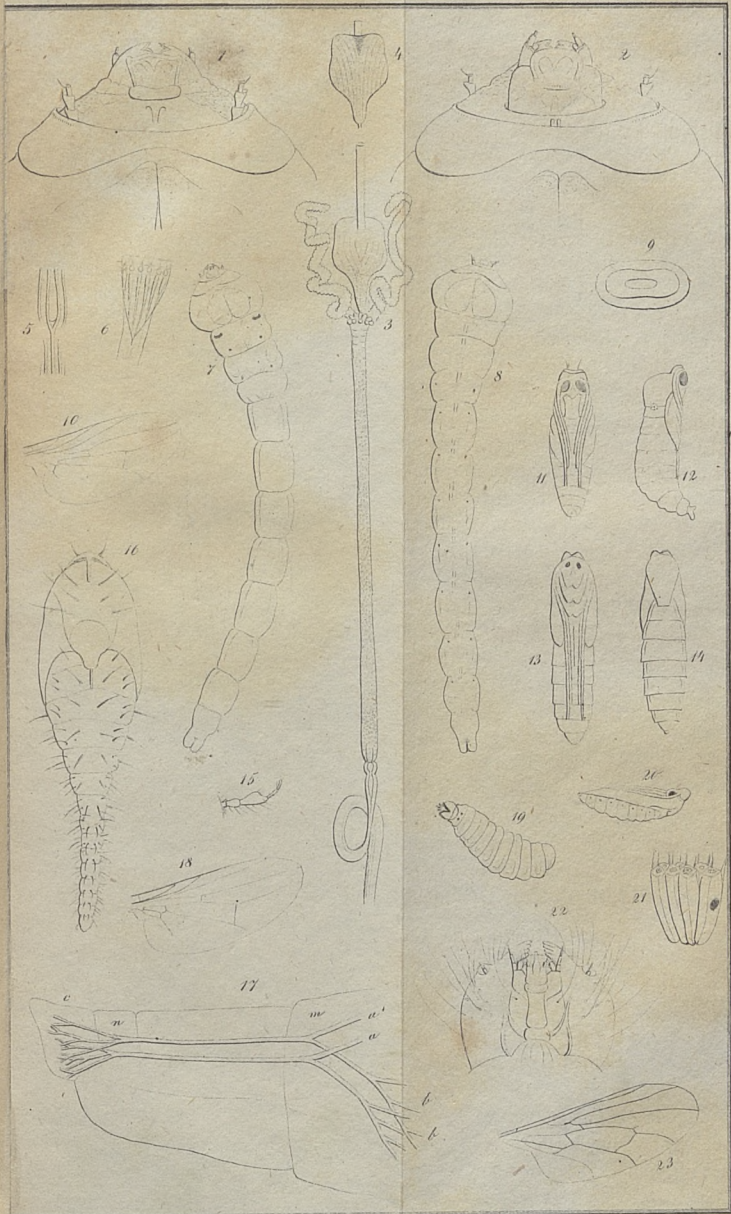 1
4
2
9
5
6
3
7
8
10
11
12
16
13
14
15
20
19
18
21
22
17
c
n
m
a'
a
b
b
b
23